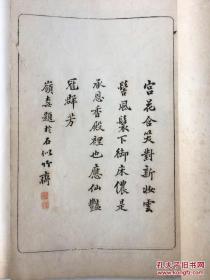 宮花含笑對新妝雲
髻風鬟下御床儂是
承恩香殿裡也應仙豔
冠群芳
嶺題於石竹齋